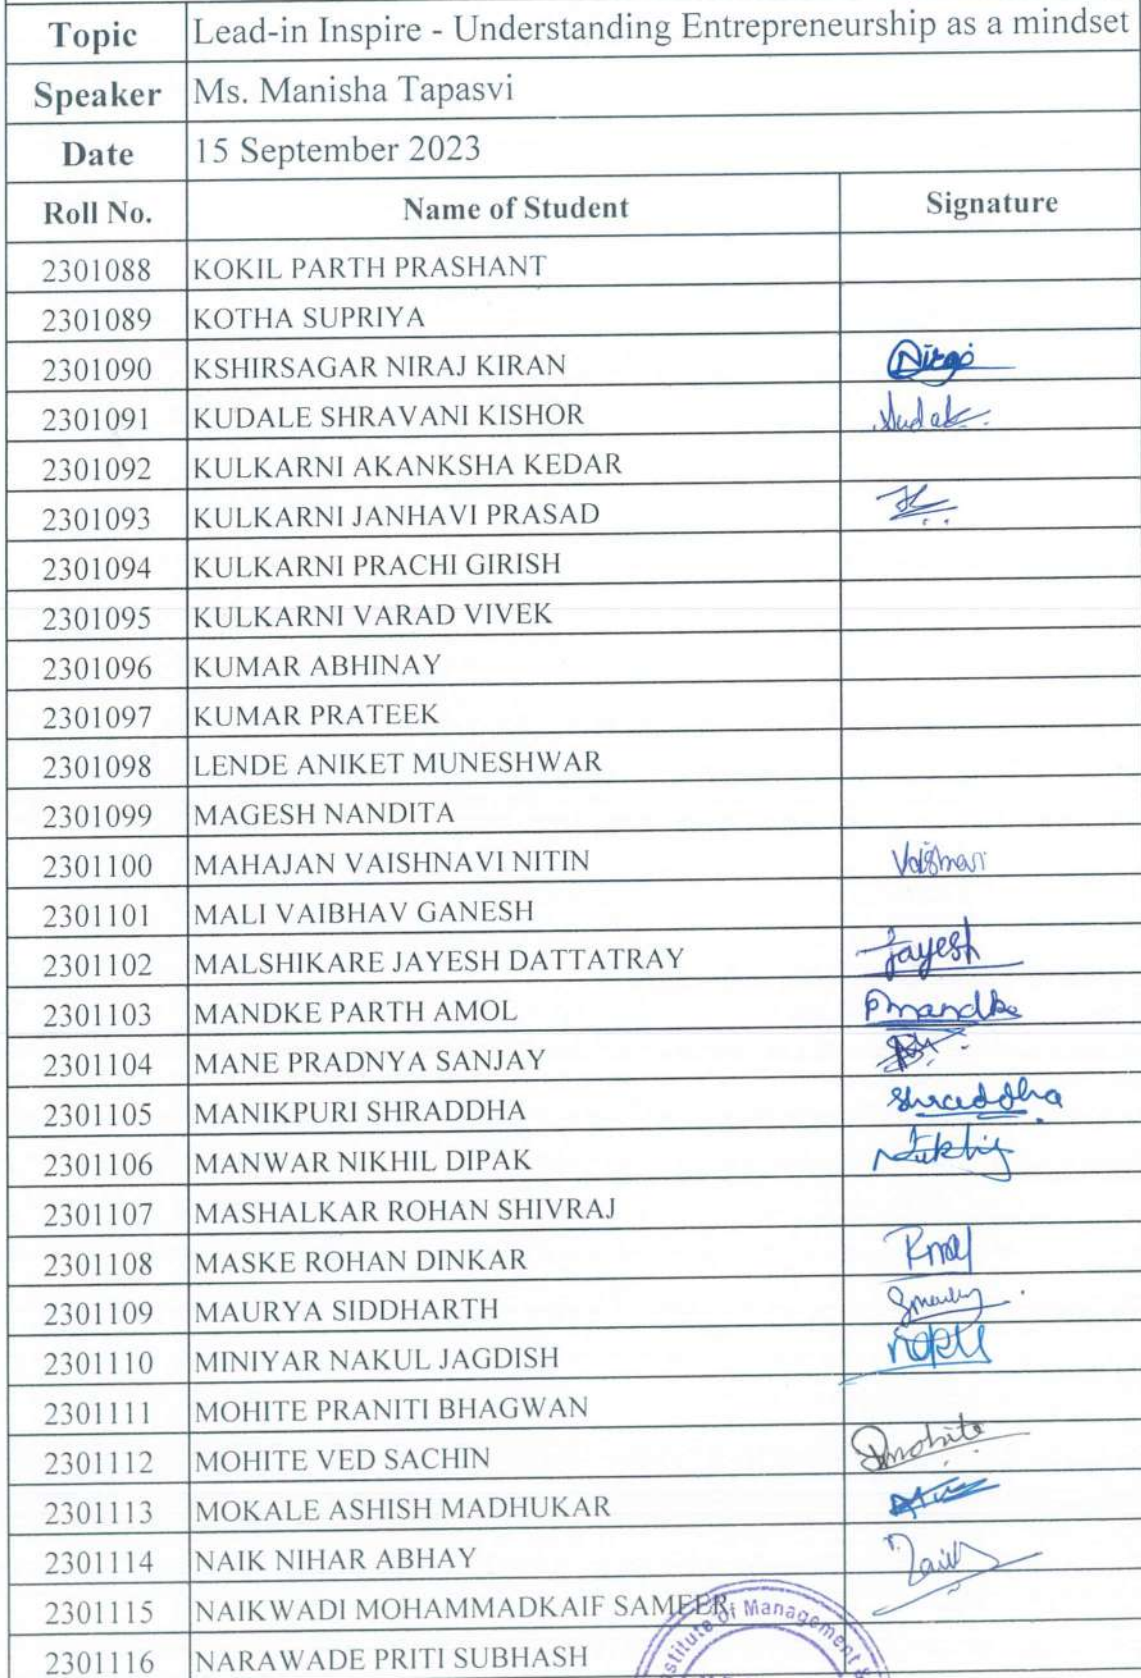 Topic Lead-in Inspire - Understanding Entrepreneurship as a mindset
Speaker Ms. Manisha Tapasvi
Date 15 September 2023
Roll No. Name of Student Signature
2301088 KOKIL PARTH PRASHANT
2301089 KOTHA SUPRIYA
2301090 KSHIRSAGAR NIRAJ KIRAN
2301091 KUDALE SHRAVANI KISHOR
2301092 KULKARNI AKANKSHA KEDAR
2301093 KULKARNI JANHAVI PRASAD
2301094 KULKARNI PRACHI GIRISH
2301095 KULKARNI VARAD VIVEK
2301096 KUMAR ABHINAY
2301097 KUMAR PRATEEK
2301098 LENDE ANIKET MUNESHWAR
2301099 MAGESH NANDITA
2301100 MAHAJAN VAISHNAVI NITIN
2301101 MALI VAIBHAV GANESH
2301102 MALSHIKARE JAYESH DATTATRAY Jayesh
2301103 MANDKE PARTH AMOL Pmandke
2301104 MANE PRADNYA SANJAY
2301105 MANIKPURI SHRADDHA Shraddha
2301106 MANWAR NIKHIL DIPAK
2301107 MASHALKAR ROHAN SHIVRAJ
2301108 MASKE ROHAN DINKAR
2301109 MAURYA SIDDHARTH
2301110 MINIYAR NAKUL JAGDISH
2301111 MOHITE PRANITI BHAGWAN
2301112 MOHITE VED SACHIN
2301113 MOKALE ASHISH MADHUKAR
2301114 NAIK NIHAR ABHAY
2301115 NAIKWADI MOHAMMADKAIF SAMEER
2301116 NARAWADE PRITI SUBHASH